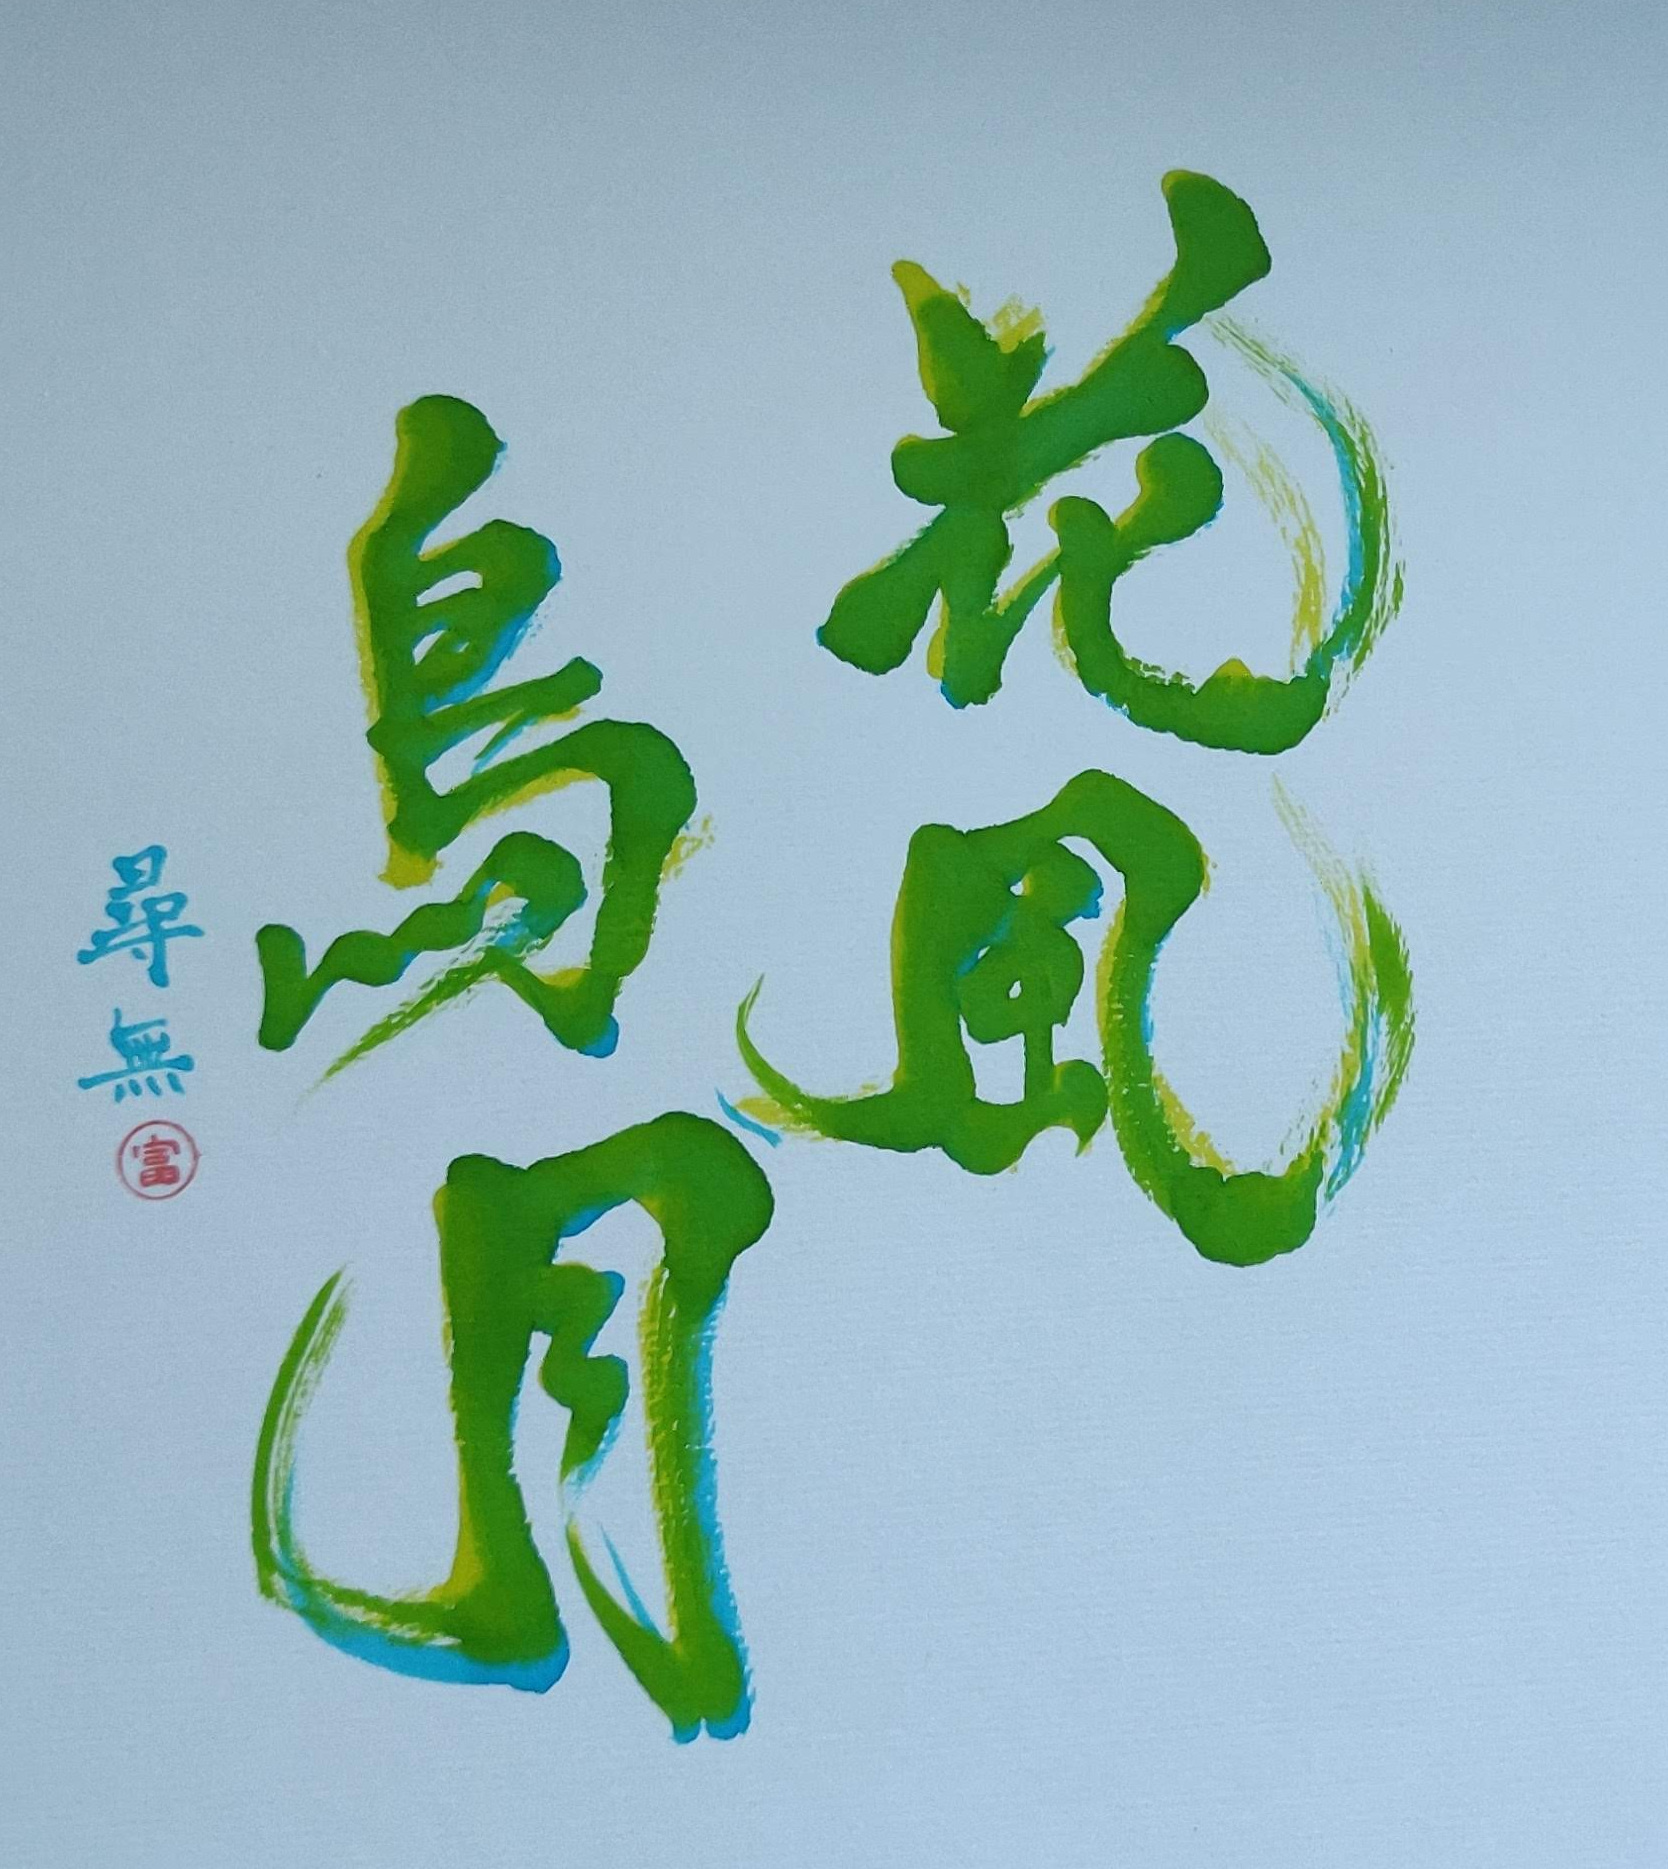 花風
鳥月
尋無
富